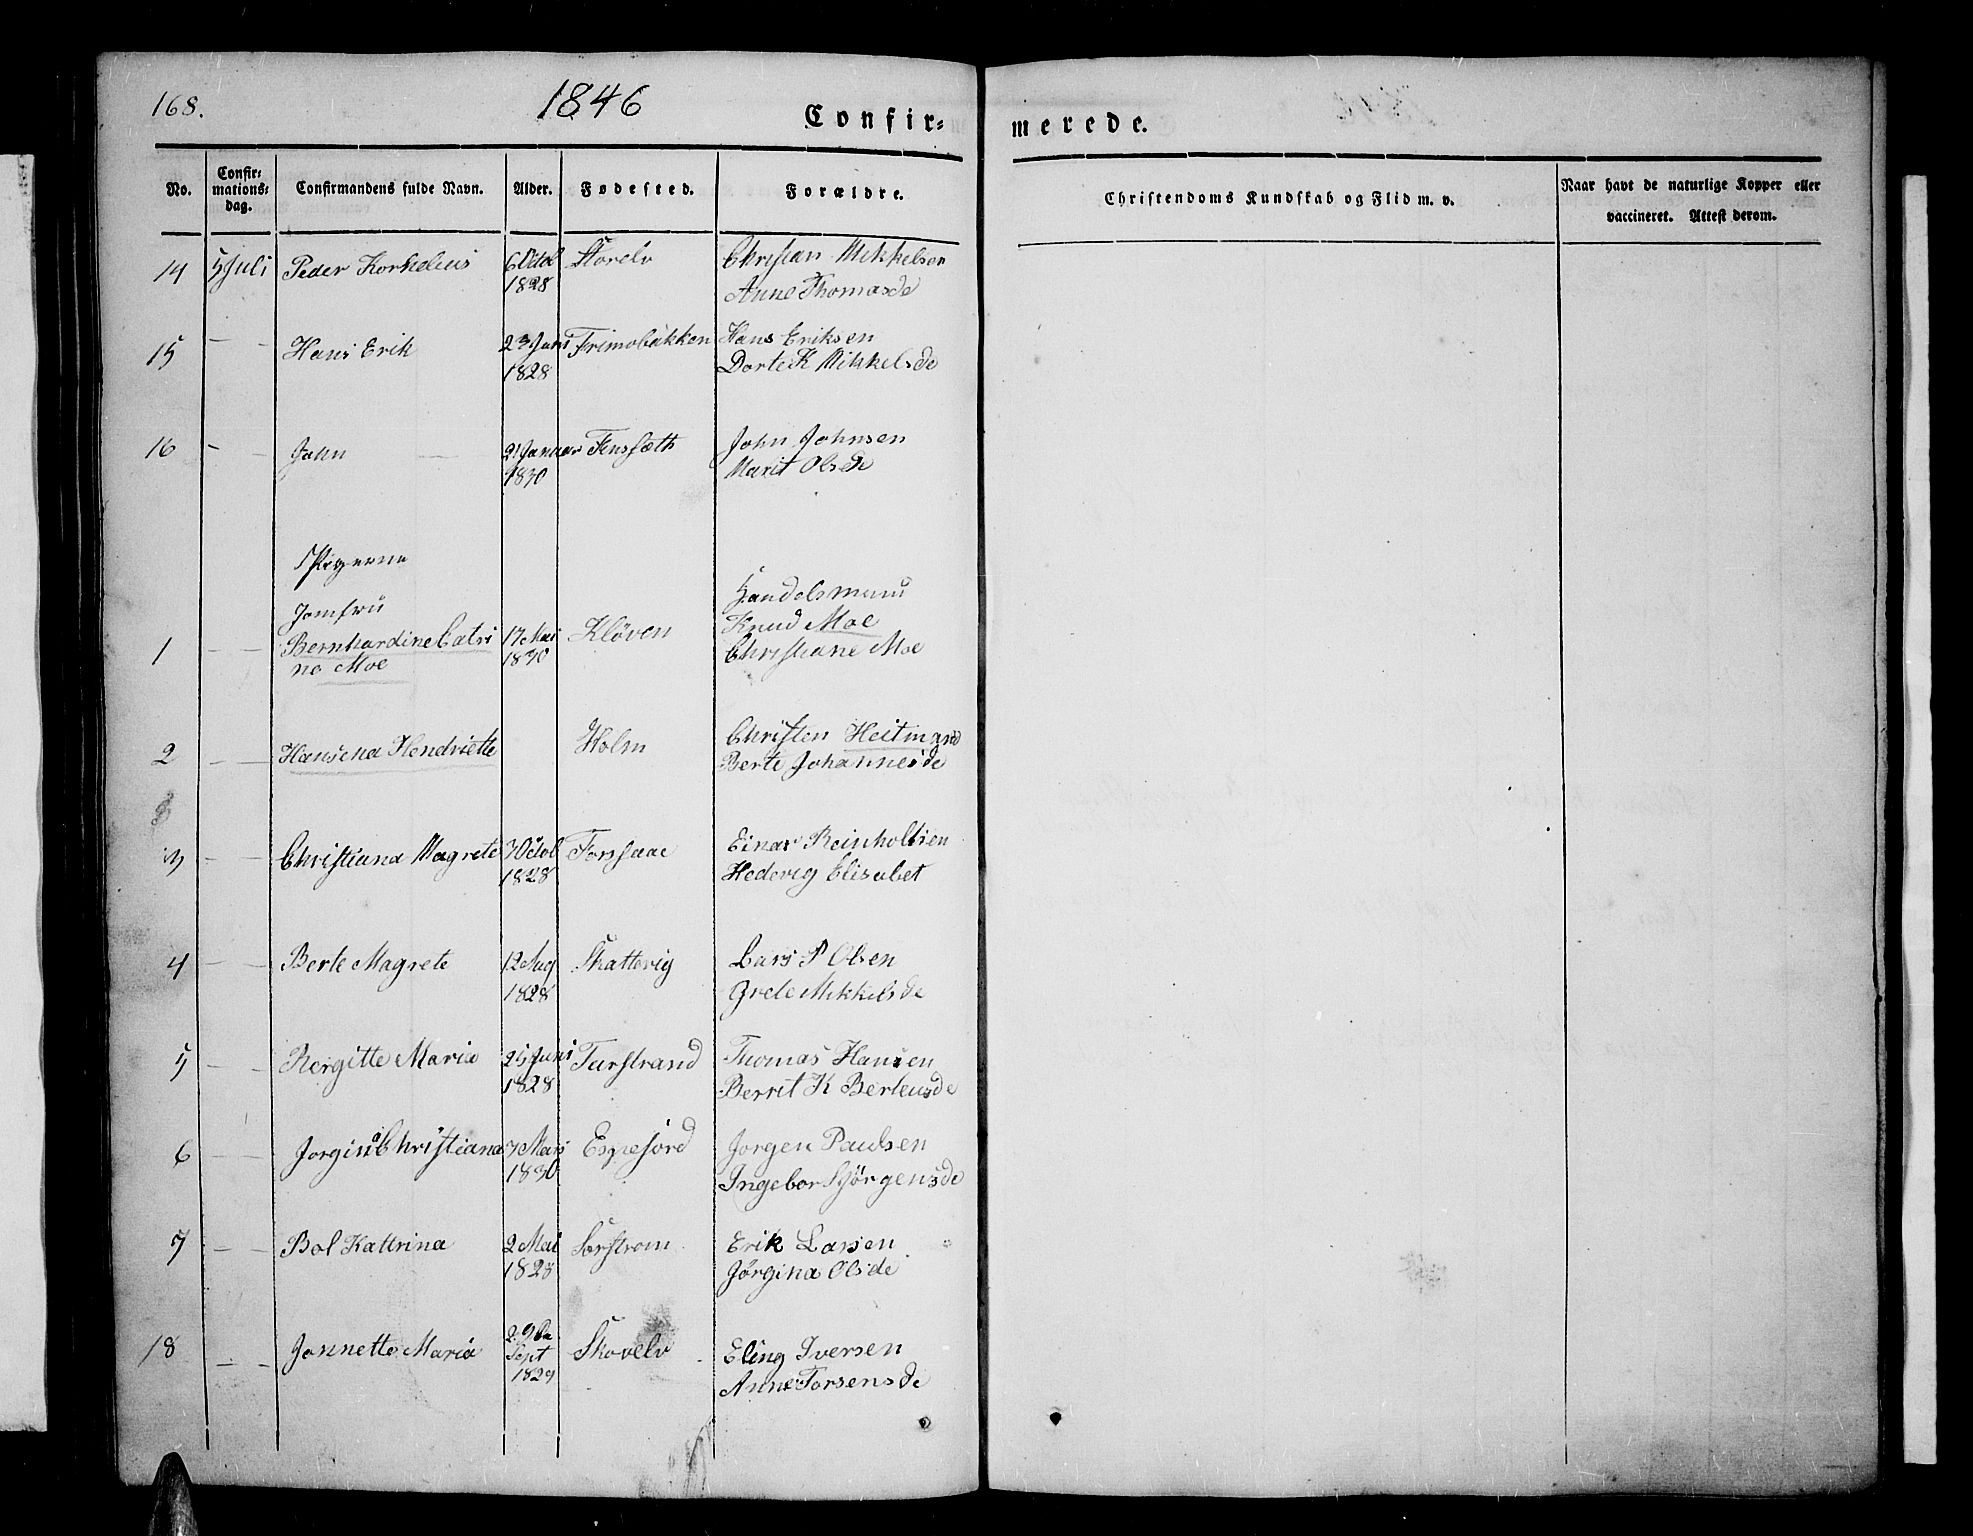 168.
1846
Confir-
merede.
No.
Confir-
mations-
dag.
Confirmandens fulde Navn.
Alder.
Fødested.
Forældre.
Christendoms Kundskab og Flid m. v.
Naar havt de naturlige Kopper eller
vaccineret. Attest derom.
14 5 Juli Peder Kornelius 6 Octob Storelv Christan Mikkelsen
1828 Anne Thomasde
15 — — Hans Erik 23 Juni Trimobakken Hans Eriksen
1828 Dorte K Mikkelsde
16 — — John 2 Januar Finsæth John Johnsen
1830 Marit Olsde
Pigerne
Jomfru Handelsmann
1 — — Bernhardine Catri 17 Mai Kløven Knud Moe
na Moe 1830 Christiane Moe
2 — — Hansena Hendriette Holm Christen Heitmand
Berte Johannesde
3 — — Christiana Magrete 3 Octob Forsaae Einar Reinholtsen
1828 Hedevig Elisabet
4 — — Berte Magrete 12 Aug Skattevig Lars P Olsen
1828 Grete Mikkelsde
5 — — Bergitte Maria 25 Juni Turstrand Thomas Hansen
1828 Berrit K Berteusde
6 — — Jorgina Christiana 7 Mars Espefjord Jorgen Paulsen
1830 Ingebor S Jörgensde
7 — — Bol Kattrina 2 Mai Sørstrom Erik Larsen
1828 Jørgina Olsde
18 — — Jonnette Maria 29de Skovelv Eling Iversen
Sept
1829 Anne Torsensde